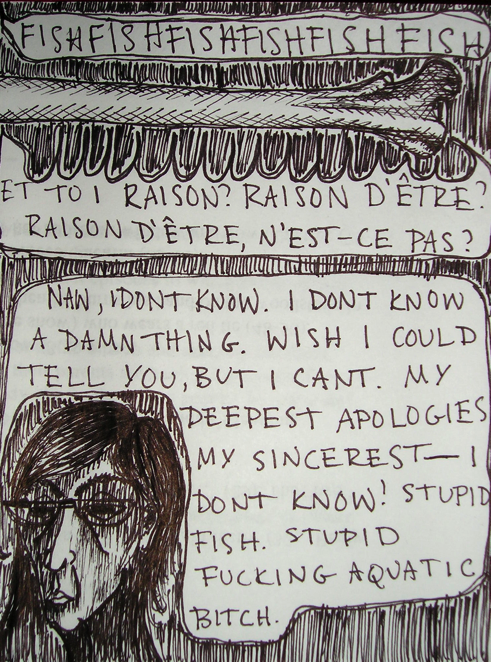 FISHFISHFISHFISHFISHFISH
ET TOI RAISON? RAISON D'ÊTRE?
RAISON D'ÊTRE, N'EST-CE PAS?
NAW, I DONT KNOW. I DONT KNOW
A DAMN THING. WISH I COULD
TELL YOU, BUT I CANT. MY
DEEPEST APOLOGIES
MY SINCEREST— I
DONT KNOW! STUPID
FISH. STUPID
FUCKING AQUATIC
BITCH.